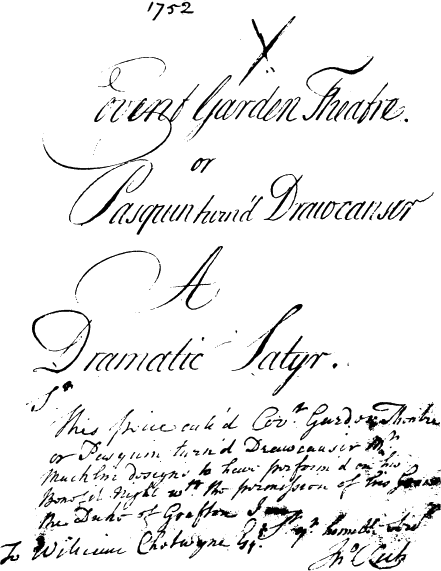 1752
Covent Garden Theatre.
or
Pasquin turn'd Drawcansir
A
Dramatic Satyr.
Sr
This piece call'd Covt Garden Theatre
or Pasquin turn'd Drawcansir Mr
Macklin designs to have perform'd on his
Benefit Night wth the permission of his Grace
the Duke of Grafton I am Sr yr humble Servt
To William Chetwynd Esqr. Jno Rich